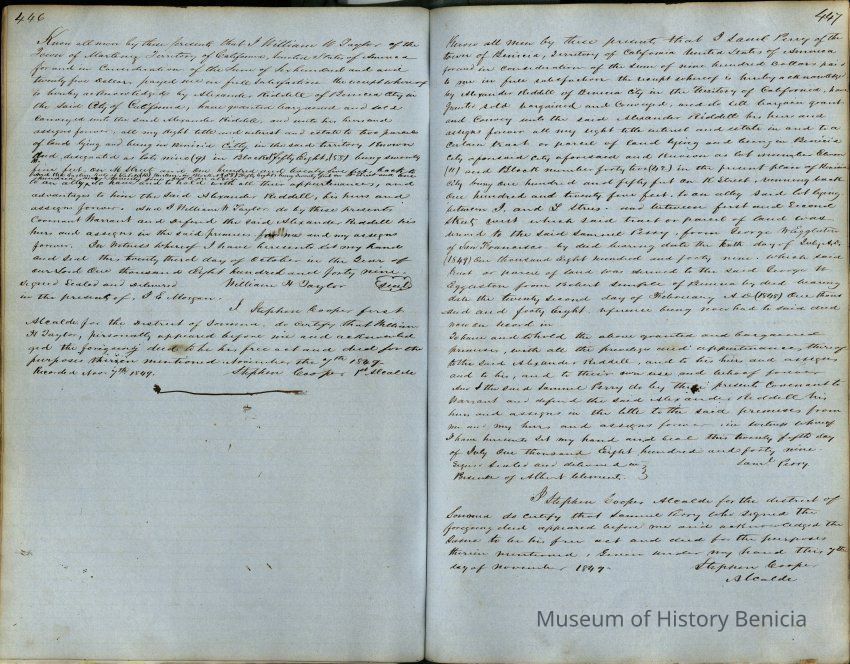 446
Know all men by these presents that I William H Taylor of the
Town of Martinez Territory of California United States of America
for and in Consideration of the Sum of Six hundred and
twenty five Dollars paid me in full satisfaction the receipt whereof
is hereby acknowledged by Alexander Riddell of Benicia City in
the said City of California, have granted bargained and sold
Conveyed unto the said Alexander Riddell and unto his heirs and
assigns forever, all my right title and interest and estate to two parcels
of land lying and being in Benicia City in the said territory Known
and designated as lots nine (9) in Block Fifty Eight, (58) being seventy
five feet on H Street One hundred and twenty five feet back to
to an alley. To have and to hold with all their appurtenances, and
advantages to him the Said Alexander Riddell, his heirs and
assigns forever. And I William H Taylor do by these presents,
Covenant Warrant and Defend the said Alexander Riddell his
heirs and assigns in the said premises for me and my assigns
forever. In Witness whereof I have hereunto set my hand
and Seal this twenty third day of October in the Year of
our Lord One thousand Eight hundred and forty nine.
Signed Sealed and Delivered William H Taylor Seal
in the presence of J. E. Morgan.
I Stephen Cooper first
Alcalde for the District of Sonoma, do certify that William
H Taylor, personally appeared before me and acknowled
ged the foregoing deed to be his free act and deed for the
purposes therein mentioned November the 7th 1849
Recorded Nov. 7th 1849. Stephen Cooper 1st Alcalde
447
Know all men by these presents that I Saml Perry of the
town of Benicia, Territory of California United States of America
for and in Consideration of the sum of nine hundred Dollars paid
to me in full satisfaction the receipt whereof is hereby acknowledged
by Alexander Riddell of Benicia City in the Territory of California, have
granted sold bargained and Conveyed, and do sell bargain grant
and Convey unto the said Alexander Riddell his heirs and
assigns forever all my right title interest and estate in and to a
Certain tract or parcel of land lying and being in Benicia
City aforesaid City aforesaid and Known as lot number Eleven
(11) and Block number forty two (42) in the present plan of Benicia
City being one hundred and fifty feet on K Street running back
One hundred and twenty five feet to an alley Said lot lying
between I. and J. Strees. and between first and Second
Street East which said tract or parcel of land was
deeved to the said Samuel Perry. from George W Eggleston
of San Francisco by deed bearing date the tenth day of July A.D.
(1849) One thousand Eight hundred and forty nine. which said
tract or parcel of land was deeved to the said George W
Eggleston from Robert Semple of Benicia by deed bearing
date the twenty Second day of February A.D (1848) One thous
and and forty Eight, reference being now had to said deed
now on record in
To have and to hold the above granted and bargained
premises, with all the privileges and appurtenances thereof
to the said Alexander Riddell, and to his heirs and assigns
and to his, and to their own use and behoof forever
And I the said Samuel Perry do by these present Covenants to
Warrant and defend the said Alexander Riddell his
heirs and assigns in the title to the said premises from
me and my heirs and assigns forever in witness whereof
I have hereunto Set my hand and Seal this twenty fifth day
of July One thousand Eight hundred and forty nine.
Signed Sealed and delivered in Saml Perry
Presence of Albert Clement.
I Stephen Cooper Alcalde for the district of
Sonoma do certify that Samuel Perry who signed the
foregoing deed appeared before me and acknowledged the
Same to be his free act and deed for the purposes
therein mentioned. Given under my hand this 7th
day of November 1849. Stephen Cooper
Alcalde
Museum of History Benicia